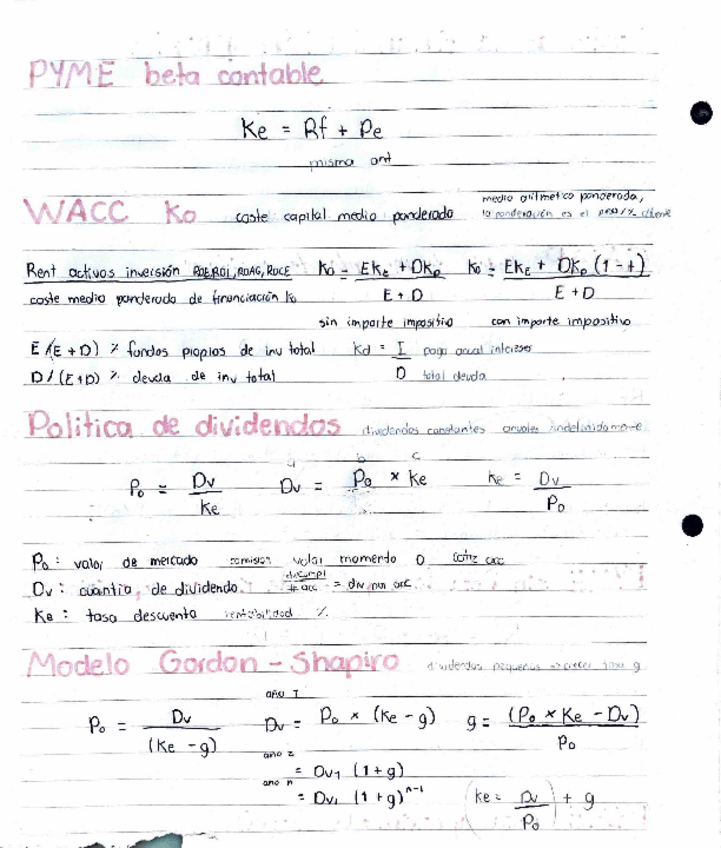 PYME beta contable
Ke = Rf + Pe
misma ant
WACC Ko coste capital medio ponderado
medio aritmetico ponderada,
la ponderación es el peso/%
Rent activos inversión ROE, ROI, ROAG, ROCE Ko = EKe + DKp / E + D Ko = EKe + DKp (1 - t) / E + D
coste medio ponderado de financiación Ko
sin importe impositivo con importe impositivo
E/(E + D) % fondos propios de inv total Kd = I / D pago anual intereses
D/(E+D) % deuda de inv total total deuda
Politica de dividendos dividendos constantes anuales indefinidamente
a b c
Po = Dv / Ke Dv = Po × Ke Ke = Dv / Po
Po: valor de mercado emision valor momento 0 cotiz acc
Dv: cuantia de dividendo = div por acc
Ke: tasa descuenta rentabilidad %
Modelo Gordon - Shapiro dividendos pequeños → crecer tasa g
año 1
Po = Dv / (Ke - g) Dv = Po × (Ke - g) g = (Po × Ke - Dv) / Po
año 2
= Dv1 (1 + g)
año n
= Dv1 (1 + g)^n-1 (Ke = Dv / Po) + g